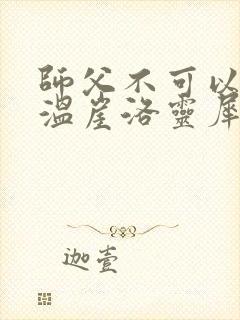 師父不可以
溫崖洛靈犀
迦壹